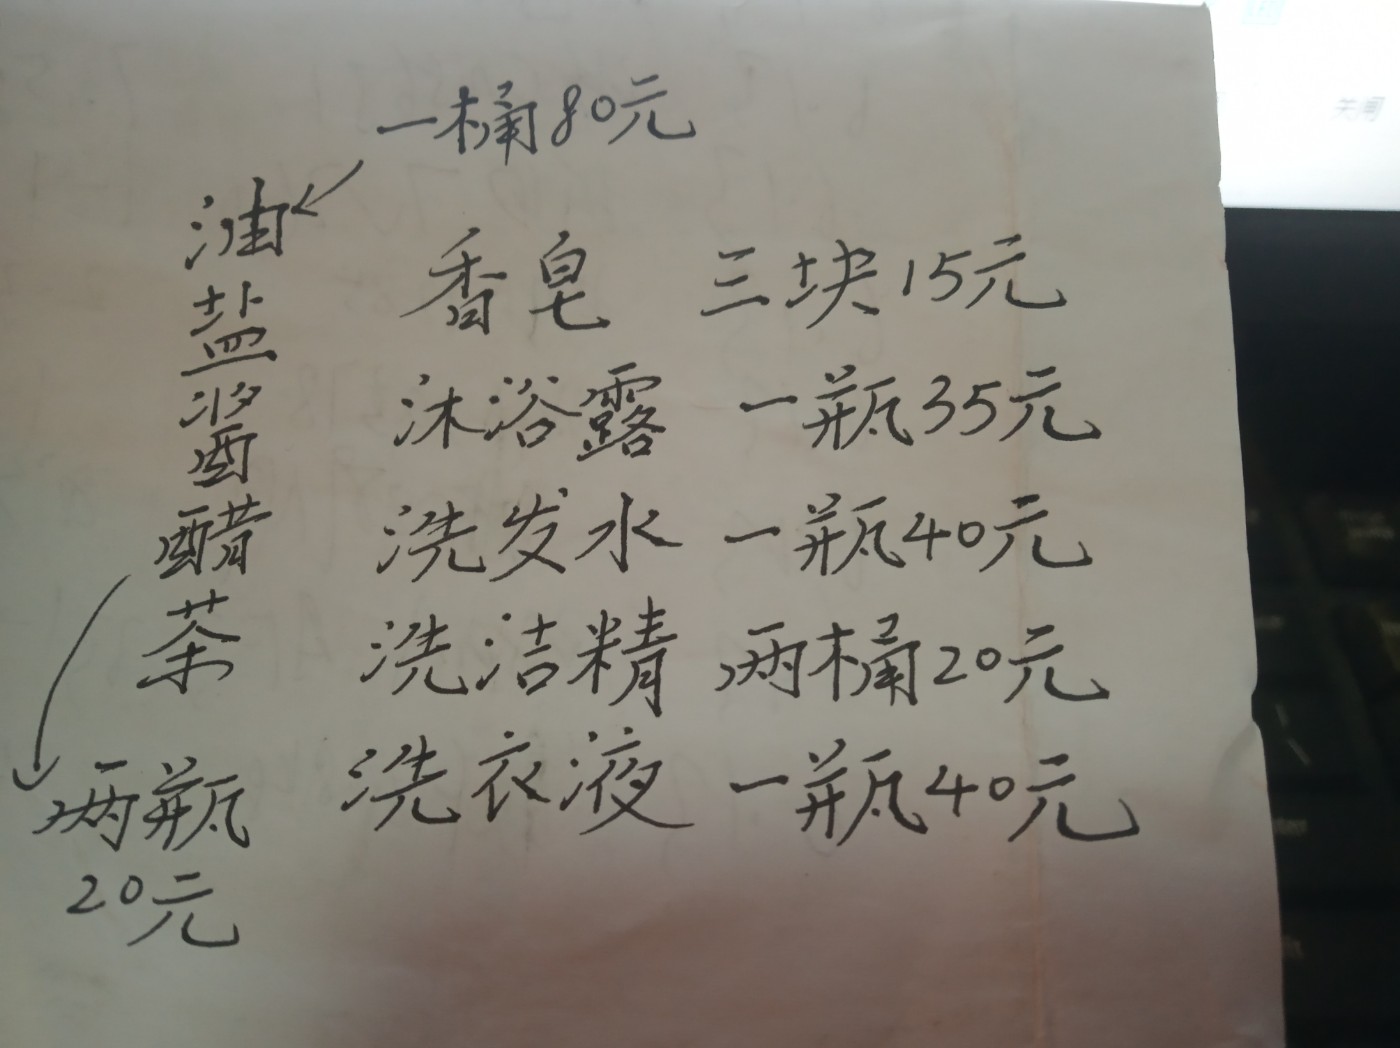 一桶80元
油盐酱醋茶
两瓶
20元
香皂 三块15元
沐浴露 一瓶35元
洗发水 一瓶40元
洗洁精 两桶20元
洗衣液 一瓶40元
关闭